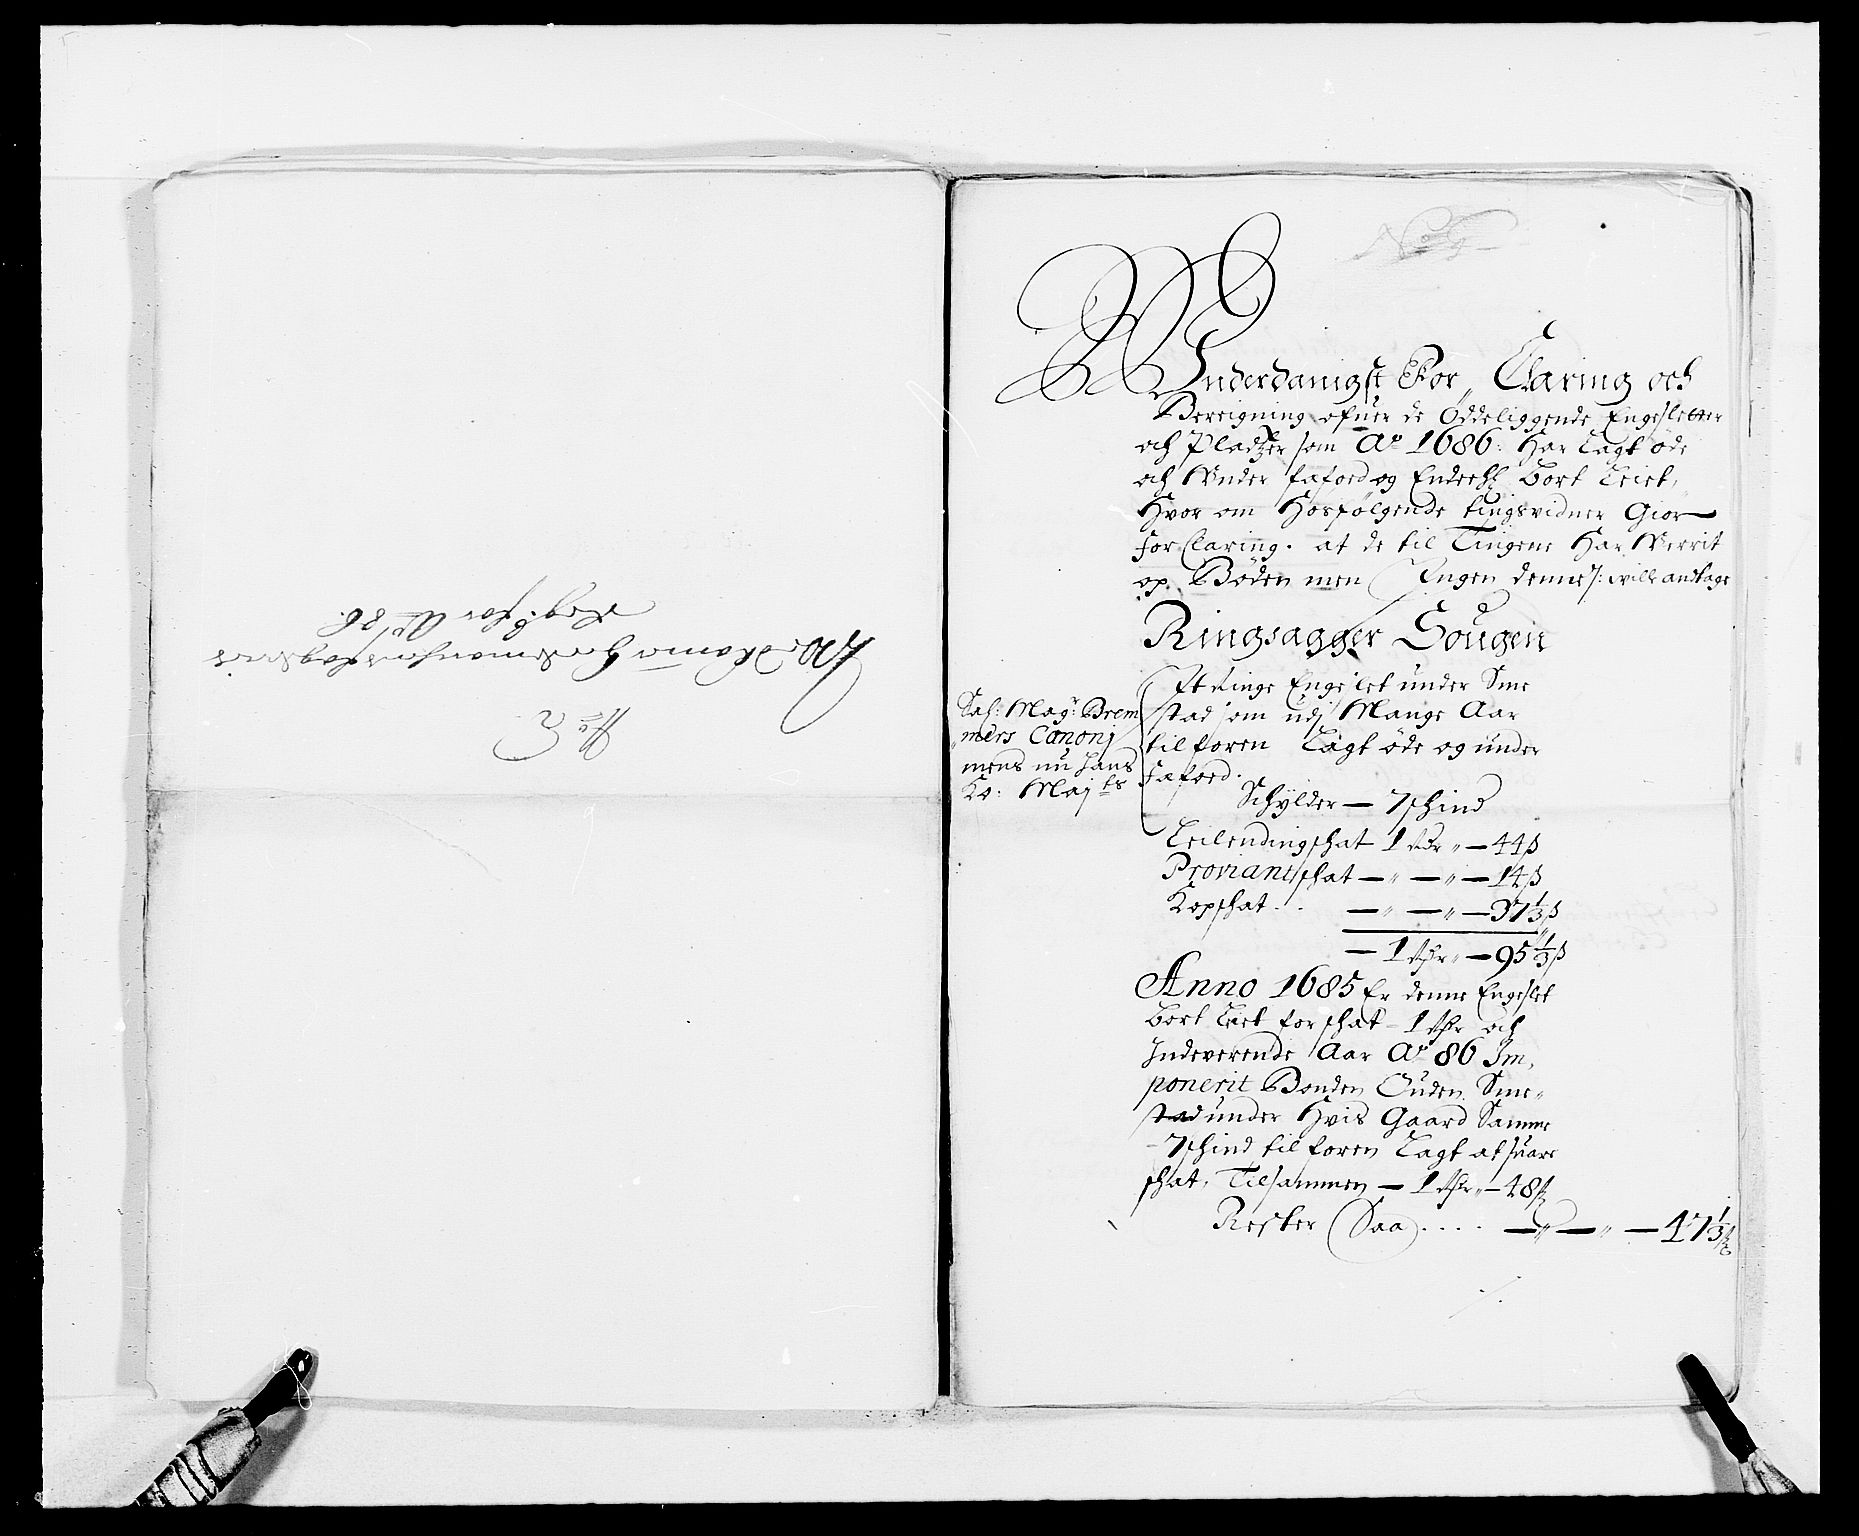 No 2
Regsk for Ao 86.
No 9
Underdanigst For Claring och
Bereigning ofuer de Øddeliggende Engesletter
och Pladtzer som Ao 1686: Har Lagt øde
och Wnder fæford og Endeehl bort Leiet,
Hvor om Hosfølgende tingsvidner Giør
for Claring. at de til Tingene Har Werrit
op Bøden men Ingen dennes: wille andtage
Ringsagger Sougen
It ringe Engeslet under Sme
stad som udj Mange Aar
til foren Lagt øde og under
fæford.
Sal: Magr: Brem
mers Canonj
mens nu Hans
Ko: Majts
Schylder — 7 schind
Leilendingschat 1 Rdr „ — 44 ß
Proviantschat — „ — „ — 14 ß
Kopschat .. — „ — „ — 37 1/3 ß
— 1 Rdr „ — 95 1/3 ß
Anno 1685 Er denne Engeslet
bort Leiet for schat - 1 Rdr och
Indeverende Aar Ao 86 Im„
ponerit Bonden Ouden Sme„
stad under Hvis Gaard Samme
- 7 schind til foren Lagt at suare
schat, Tilsammen — 1 Rdr „ — 48 ß
Rester Saa .... — „ — „ — 47 1/3 ß